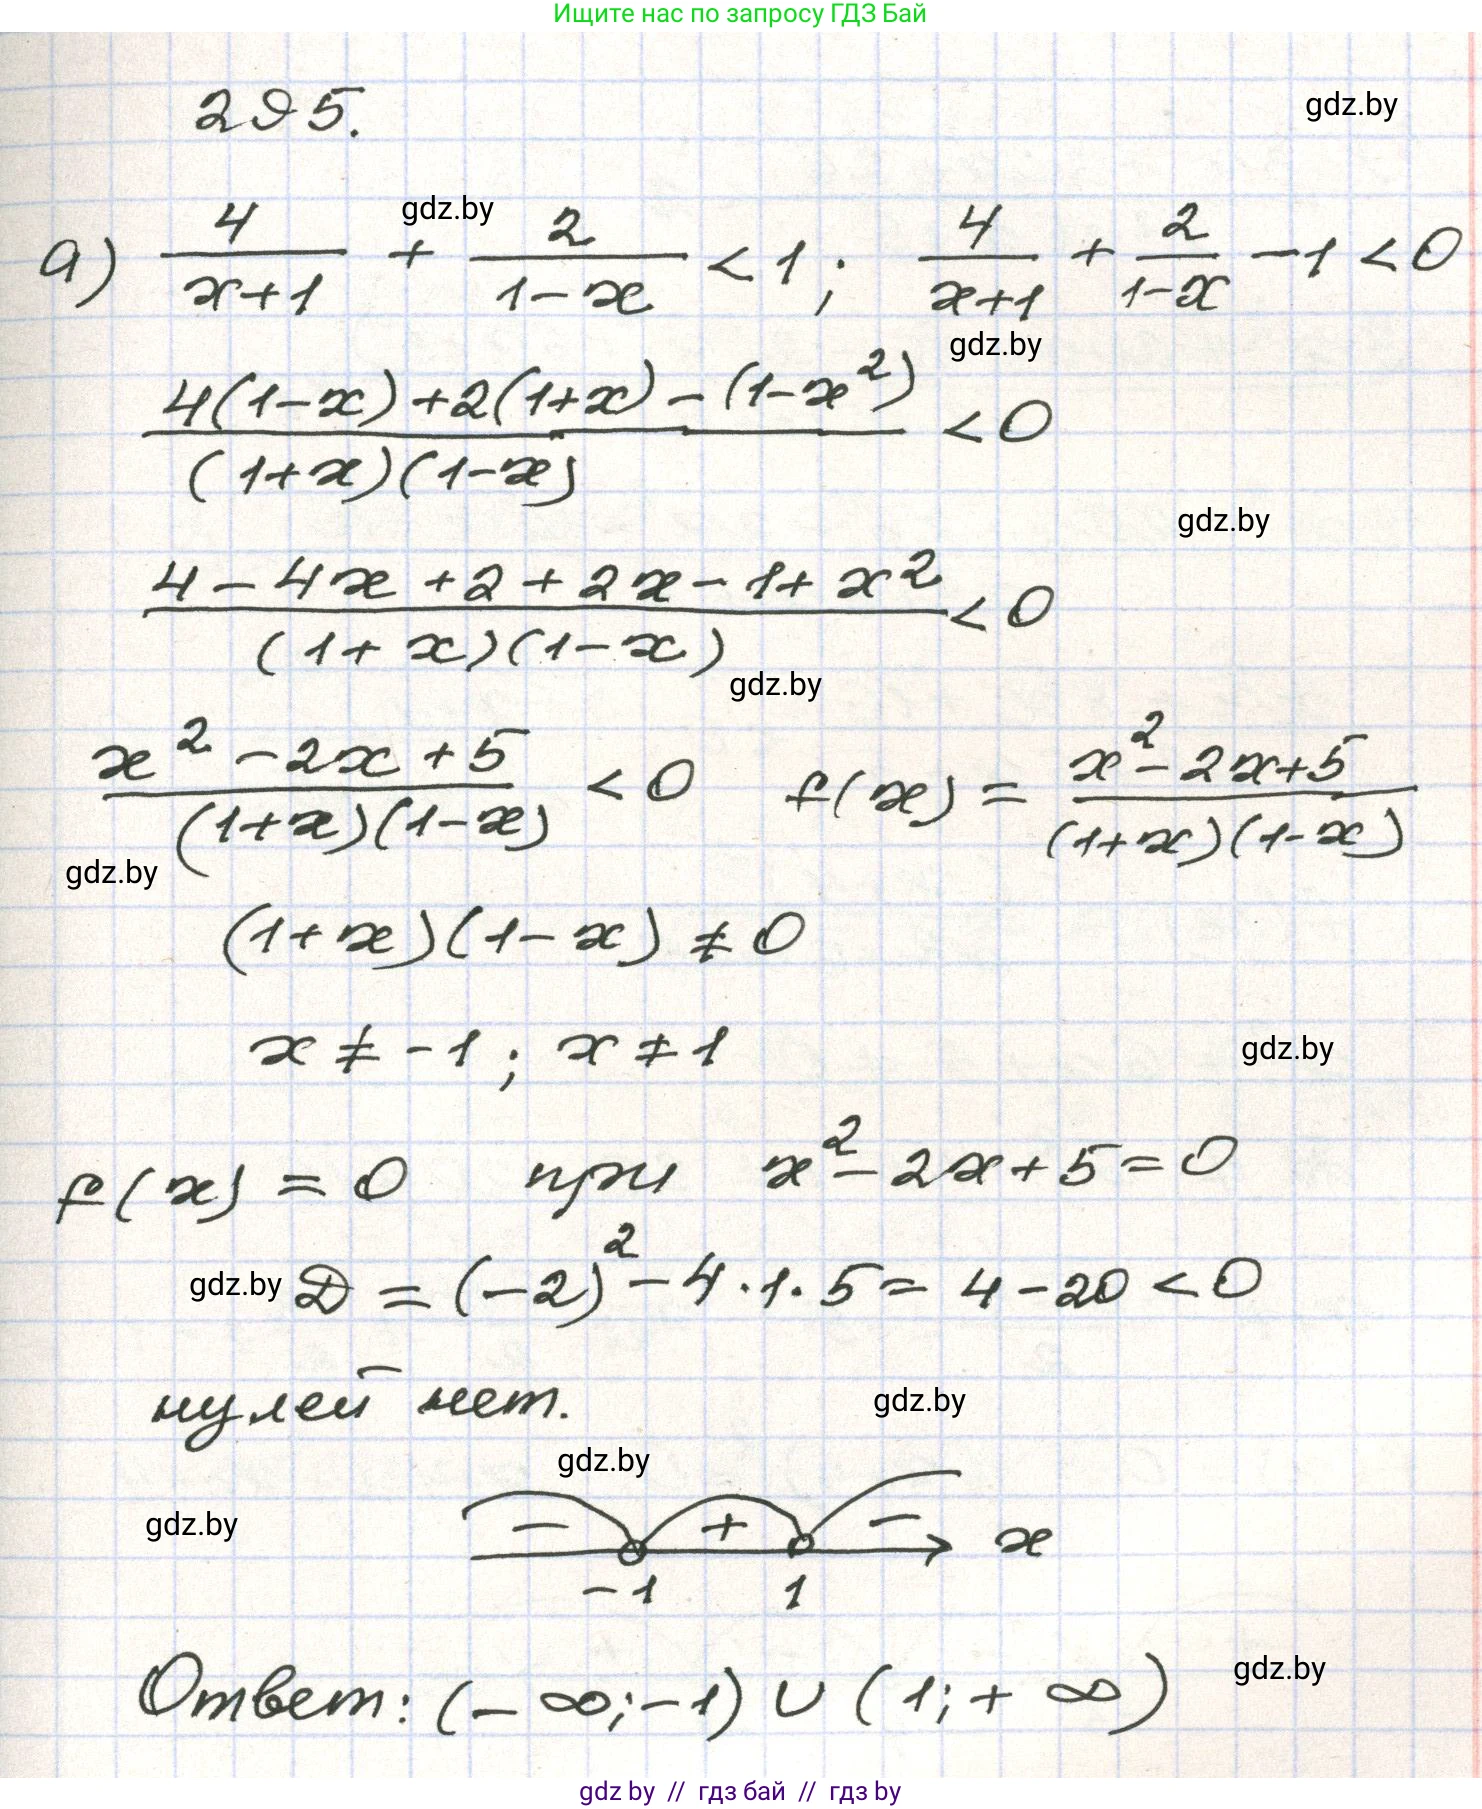 Ищите нас по запросу ГДЗ Бай
295.
gdz.by
gdz.by
а) 4/(x+1) + 2/(1-x) < 1; 4/(x+1) + 2/(1-x) - 1 < 0
gdz.by
(4(1-x)+2(1+x)-(1-x²))/((1+x)(1-x)) < 0
gdz.by
(4-4x+2+2x-1+x²)/((1+x)(1-x)) < 0
gdz.by
(x²-2x+5)/((1+x)(1-x)) < 0 f(x) = (x²-2x+5)/((1+x)(1-x))
gdz.by
(1+x)(1-x) ≠ 0
x ≠ -1; x ≠ 1
gdz.by
f(x) = 0 при x²-2x+5=0
gdz.by
D = (-2)² - 4·1·5 = 4-20 < 0
нулей нет.
gdz.by
gdz.by
gdz.by
- + - x
-1 1
Ответ: (-∞;-1) ∪ (1;+∞)
gdz.by
gdz by // гдз бай // гдз by